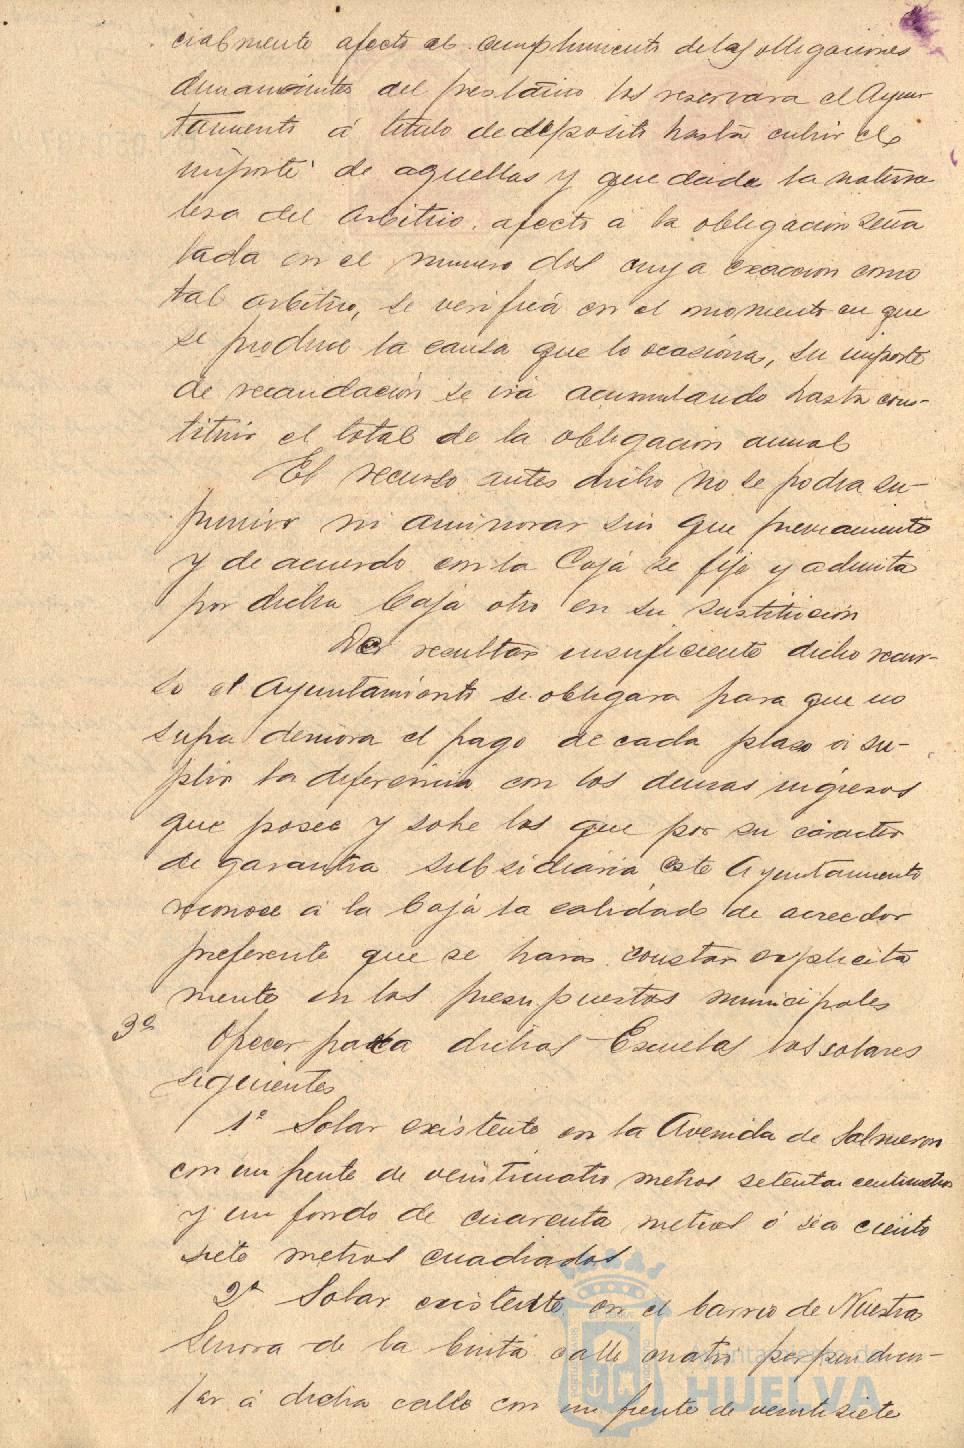 cialmente afecto al cumplimiento de las obligaciones
dimanantes del prestamo los reservara el Ayun-
tamiento á titulo de deposito hasta cubrir el
importe de aquellas y que dada la natura
leza del arbitrio afecto a la obligacion seña
lada en el numero dos cuya exaccion como
tal arbitrio, se verificá en el momento en que
se produce la causa que lo ocasióna, su importe
de recaudación se irá acumulando hasta cons-
tituir el total de la obligacion anual
El recurso antes dicho no se podra su-
primir ni aminorar sin que previamente
y de acuerdo con la Caja se fije y admita
por dicha Caja otro en su sustitución
De resultar insuficiente dicho recur-
so el Ayuntamiento se obligara para que no
sufra demora el pago de cada plazo á su-
plir la diferencia con los demas ingresos
que posee y sobre los que por su caracter
de garantia subsidiaria este Ayuntamiento
reconoce á la Caja la calidad de acreedor
preferente que se hara constar explicita
mente en los presupuestos municipales
3º Ofrecer para dichas Escuelas los solares
siguientes
1º Solar existente en la Avenida de Salmeron
con un frente de veinticuatro metros setenta centimetros
y un fondo de cuarenta metros ó sea ciento
siete metros cuadrados
2º Solar existente en el barrio de Nuestra
Señora de la Cinta calle cuatro perpendicu-
lar á dicha calle con un frente de veintisiete
Ayuntamiento de
HUELVA